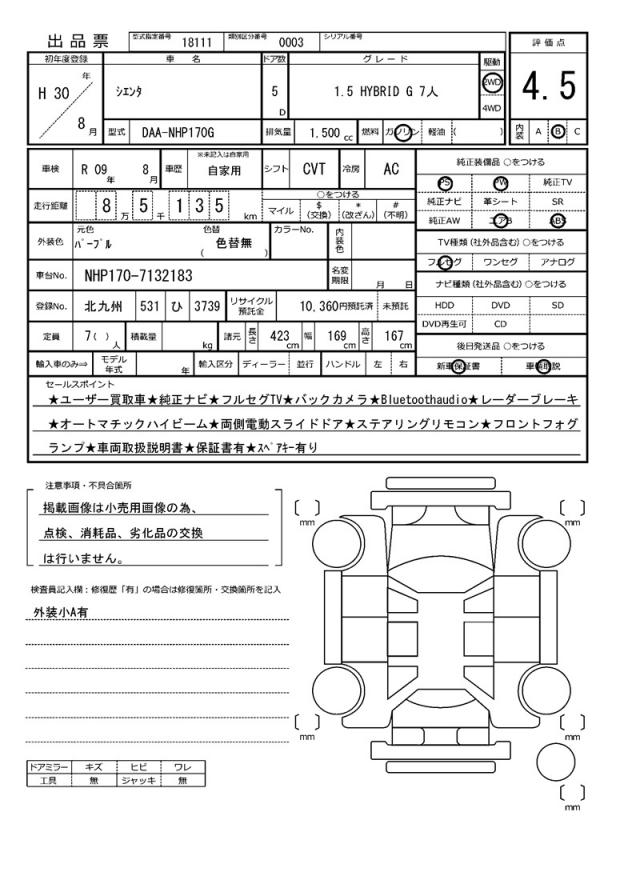 出品票 型式指定番号 18111 類別区分番号 0003 シリアル番号
評価点
4.5
内装 A B C
初年度登録 車名 ドア数 グレード 駆動
H 30 年 8 月 シエンタ 5 D 1.5 HYBRID G 7人 2WD 4WD
型式 DAA-NHP170G 排気量 1.500 cc 燃料 ガソリン 軽油 ( )
車検 R 09 年 8 月 車歴 ※未記入は自家用 自家用 シフト CVT 冷房 AC
走行距離 8 万 5 千 1 3 5 km ○をつける マイル $ (交換) * (改ざん) # (不明)
外装色 元色 パープル 色替 色替無 ( ) カラーNo. 内装色
車台No. NHP170-7132183 名変期限 月 日
登録No. 北九州 531 ひ 3739 リサイクル預託金 10,360円預託済 未預託
定員 7( ) 人 積載量 kg 諸元 長さ 423 cm 幅 169 cm 高さ 167 cm
輸入車のみ⇒ モデル年式 年 輸入区分 ディーラー 並行 ハンドル 左 右
純正装備品 ○をつける
PS PW 純正TV
純正ナビ 革シート SR
純正AW エアB ABS
TV種類 (社外品含む) ○をつける
フルセグ ワンセグ アナログ
ナビ種類 (社外品含む) ○をつける
HDD DVD SD
DVD再生可 CD
後日発送品 ○をつける
新車保証書 車輌取説
セールスポイント
★ユーザー買取車★純正ナビ★フルセグTV★バックカメラ★Bluetoothaudio★レーダーブレーキ
★オートマチックハイビーム★両側電動スライドドア★ステアリングリモコン★フロントフォグ
ランプ★車両取扱説明書★保証書有★スペアキー有り
注意事項・不具合箇所
掲載画像は小売用画像の為、
点検、消耗品、劣化品の交換
は行いません。
検査員記入欄：修復歴「有」の場合は修復箇所・交換箇所を記入
外装小A有
ドアミラー キズ ヒビ ワレ
工具 無 ジャッキ 無
mm
mm
mm
mm
mm